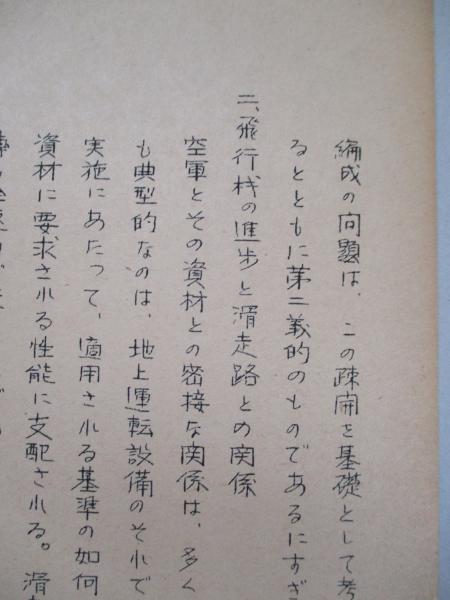 編成の問題は、この疎開を基礎として考
るとともに第二義的のものであるにすぎ
二、飛行机の進歩と滑走路との関係
空軍とその資材との密接な関係は、多く
も典型的なのは、地上運転設備のそれで
実施にあたって、適用される基準の如何
資材に要求される性能に支配される。滑